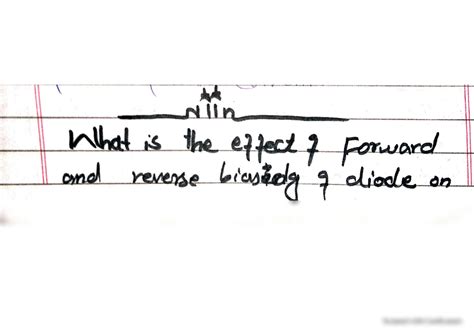 What is the effect of Forward
and reverse biasing of diode on